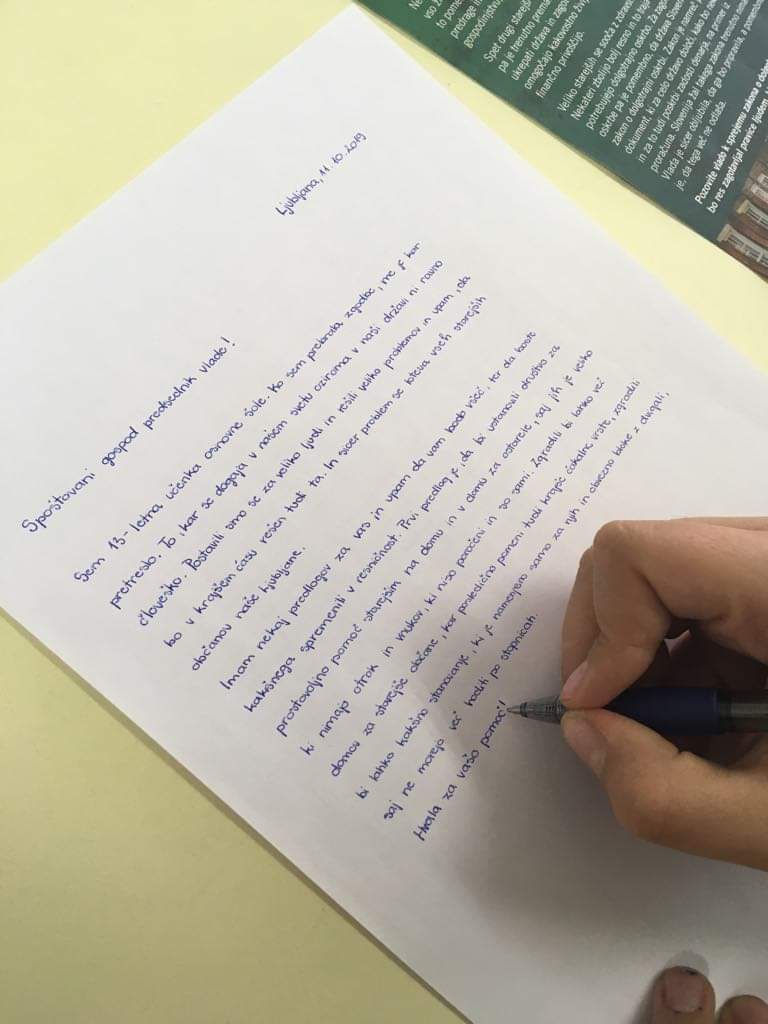 Ljubljana, 11. 10. 2019
Spoštovani gospod predsednik vlade!
Sem 13-letna učenka osnovne šole. Ko sem prebrala zgodbe, me je kar
pretreslo. To, kar se dogaja v našem svetu oziroma v naši državi ni ravno
človeško. Postavili smo se za veliko ljudi in rešili veliko problemov in upam, da
bo v krajšem času rešen tudi ta. In sicer problem se loteva vseh starejših
občanov naše Ljubljane.
Imam nekaj predlogov za vas in upam da vam bodo všeč, ter da boste
kakšnega spremenili v resničnost. Prvi predlog je, da bi ustanovili društvo za
prostovoljno pomoč starejšim na domu in v domu za ostarele, saj jih je veliko
ki nimajo otrok in vnukov, ki niso poročeni in so sami. Zgradili bi lahko več
domov za starejše občane, kar posledično pomeni tudi krajše čakalne vrste, zgradili
bi lahko kakšno stanovanje, ki je namenjeno samo za njih in obvezno bloke z dvigali,
saj ne morejo več hoditi po stopnicah.
Hvala za vašo pomoč!
Spet drugi starejši
pa je trenutno
ukrepati država in
omogočajo kakovostno
finančno
Veliko starejših se sooča z
Nekateri zbolijo bolj resno in to
potrebujejo dolgotrajno oskrbo. Za
oskrbe pa je pomembno, da države
zakon o dolgotrajni oskrbi. Zakon je namreč
dokument, ki za celo državo določi, kako bo
in za to tudi poskrbi zadosti denarja, na primer iz
proračuna. Slovenija žal takega zakona trenutno
Vlada je sicer obljubila, da ga bo pripravila, a
je, da tega več ne odlaša.
Pozovite vlado k sprejemu zakona o
bo res zagotavljal pravice ljudem,